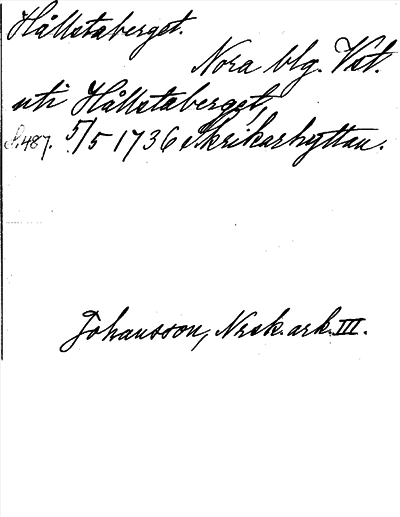 Hållstaberget.
Nora blg. Vstl.
uti Hållstaberget,
S. 487. 5/5 1736 Skrikarhyttan.
Johansson, Nrsk. ark. III.